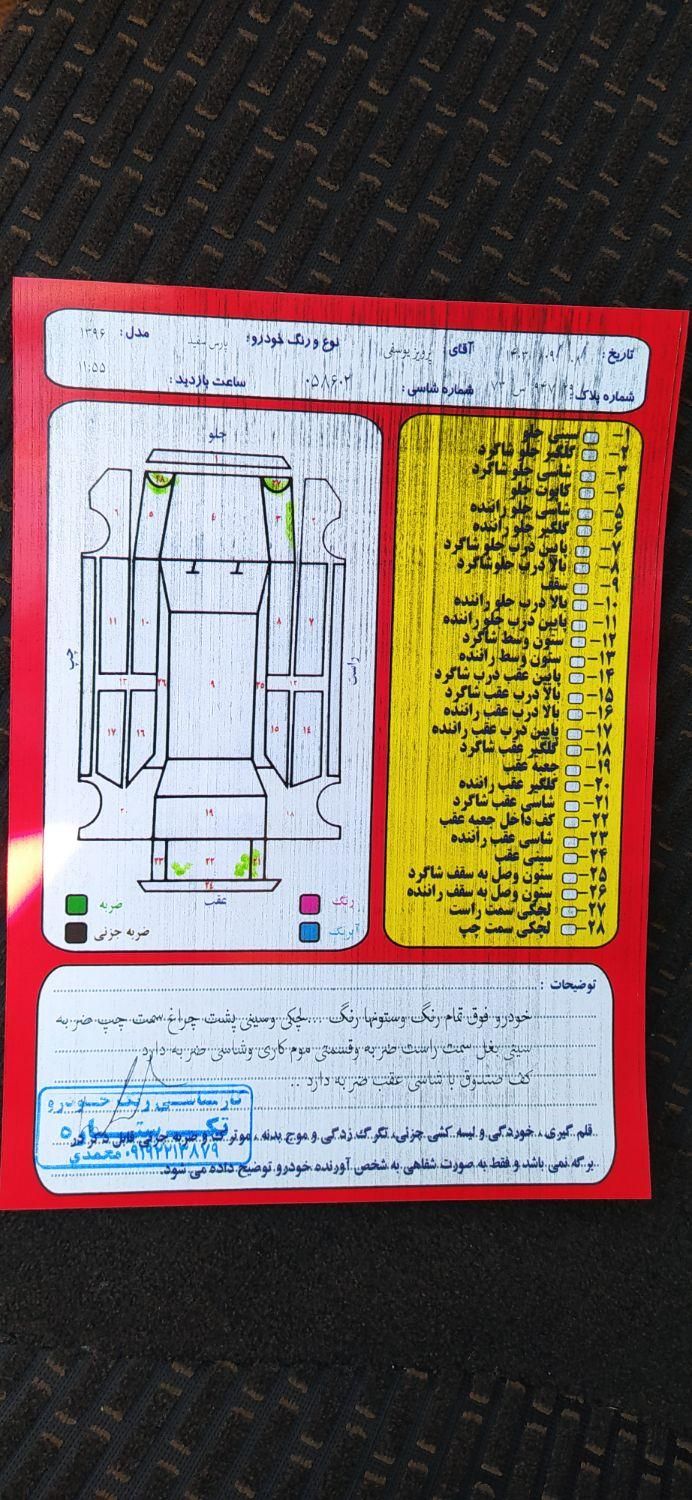 تاریخ: ۱۴۰۳/۰۹/۰۸ آقای: پرویز یوسفی نوع و رنگ خودرو: پارس سفید مدل: ۱۳۹۶
شماره پلاک: ۲۹ ۹۳۷ س ۷۳ شماره شاسی: ۰۵۸۶۰۲ ساعت بازدید: ۱۱:۵۵
۱- سینی جلو
۲- گلگیر جلو شاگرد
۳- شاسی جلو شاگرد
۴- کاپوت جلو
۵- شاسی جلو راننده
۶- گلگیر جلو راننده
۷- پایین درب جلو شاگرد
۸- بالا درب جلو شاگرد
۹- سقف
۱۰- بالا درب جلو راننده
۱۱- پایین درب جلو راننده
۱۲- ستون وسط شاگرد
۱۳- ستون وسط راننده
۱۴- پایین عقب درب شاگرد
۱۵- بالا درب عقب شاگرد
۱۶- بالا درب عقب راننده
۱۷- پایین درب عقب راننده
۱۸- گلگیر عقب شاگرد
۱۹- جعبه عقب
۲۰- گلگیر عقب راننده
۲۱- شاسی عقب شاگرد
۲۲- کف داخل جعبه عقب
۲۳- شاسی عقب راننده
۲۴- سینی عقب
۲۵- ستون وصل به سقف شاگرد
۲۶- ستون وصل به سقف راننده
۲۷- لچکی سمت راست
۲۸- لچکی سمت چپ
جلو
۱
۲۷ ۲۸
۲ ۳ ۴ ۵ ۶
۷ ۸ ۱۰ ۱۱
راست ۹ چپ
۱۲ ۲۵ ۲۶ ۱۳
۱۴ ۱۵ ۱۶ ۱۷
۱۸ ۱۹ ۲۰
۲۱ ۲۲ ۲۳
۲۴
عقب
رنگ ضربه
آبرنگ ضربه جزئی
توضیحات :
خودرو فوق تمام رنگ وستونها رنگ ... لچکی وسینی پشت چراغ سمت چپ ضربه
سینی بغل سمت راست ضربه وقسمتی موم کاری وشاسی ضربه دارد
کف صندوق با شاسی عقب ضربه دارد ..
قلم گیری، خوردگی و لیسه کشی جزئی، تگرگ زدگی و موج بدنه، موترک و ضربه جزئی قابل ذکر در
برگه نمی باشد و فقط به صورت شفاهی به شخص آورنده خودرو توضیح داده می شود.
کارشناسی رنگ خودرو
تک ستاره
۰۹۱۹۲۲۱۲۸۷۹ محمدی